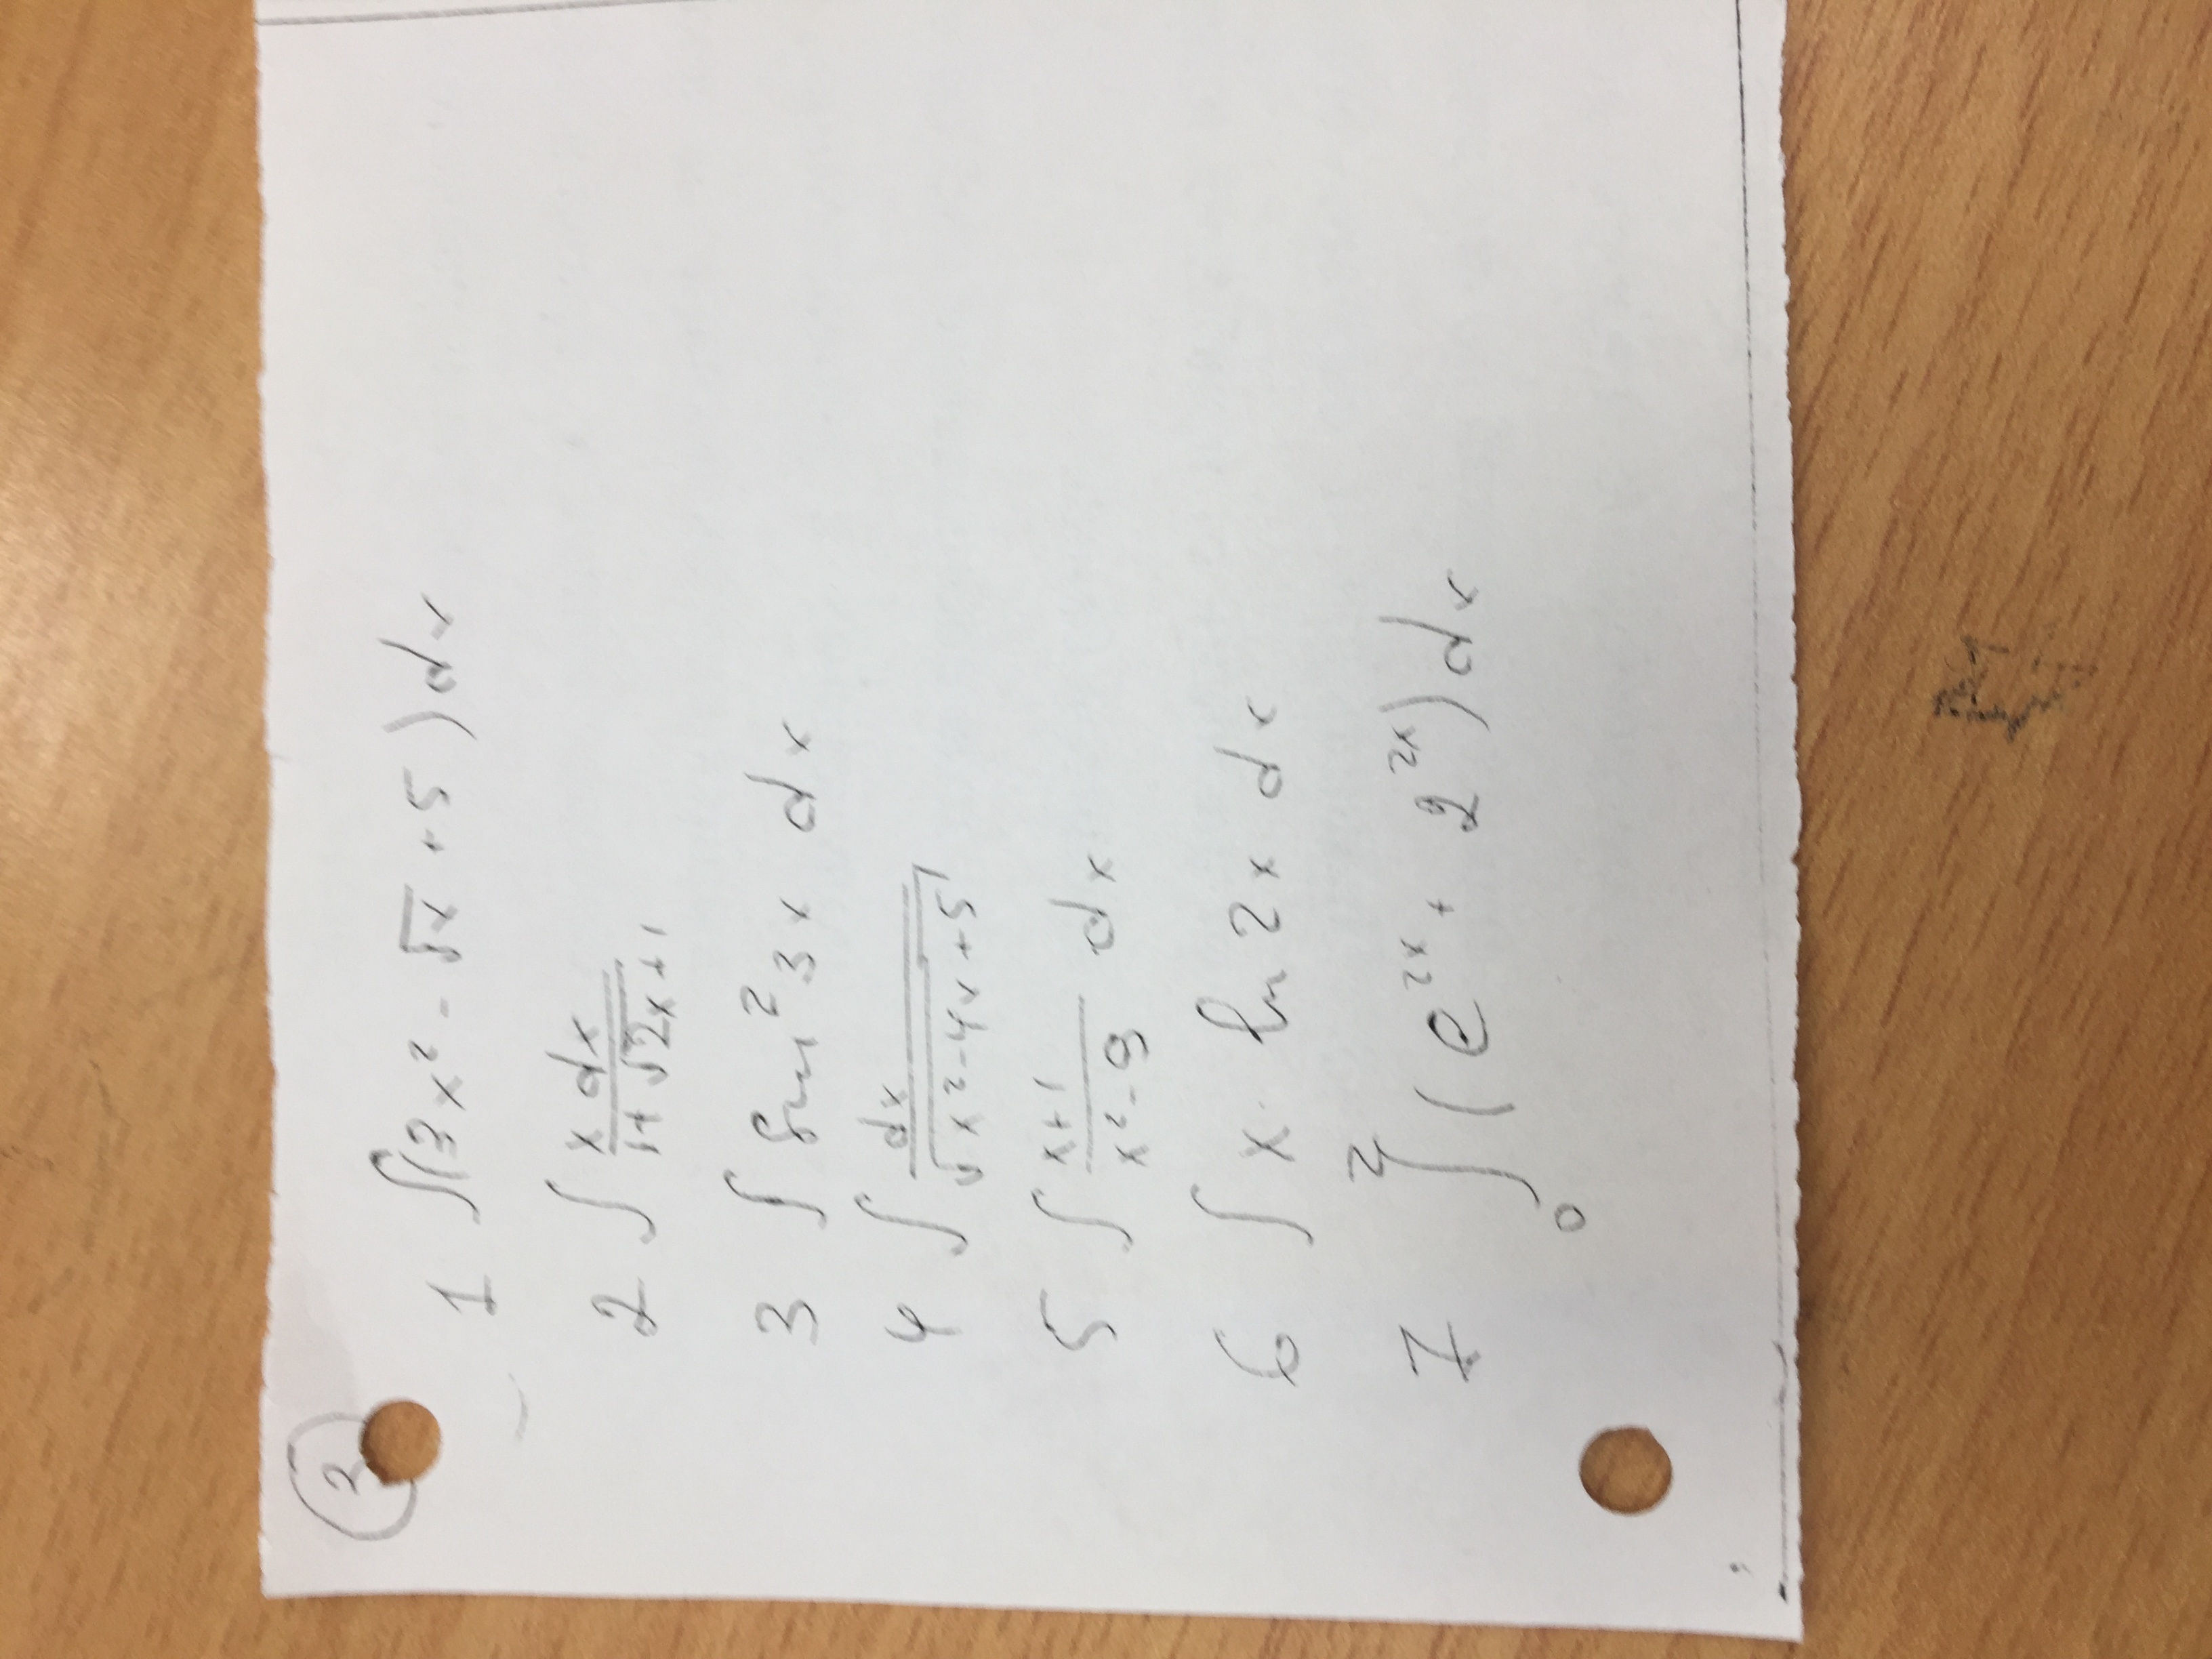 2
1 ∫(3x² - √x + 5)dx
2 ∫ x dx / (1 + √2x + 1)
3 ∫ sin² 3x dx
4 ∫ dx / √(x² - 4x + 5)
5 ∫ (x+1)/(x² - 9) dx
6 ∫ x · ln 2x dx
7 ∫₀² (e²ˣ + 2²ˣ)dx